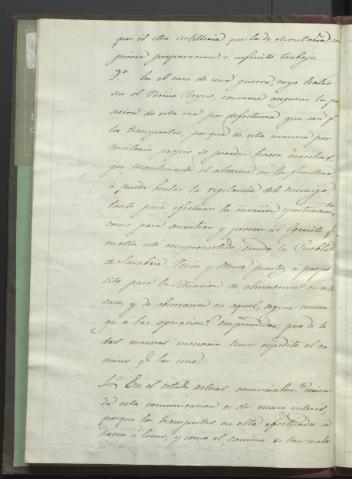 por él otra artilleria que la de Montaña, sin
previa preparacion é infinito trabajo.
3.º En el caso de una guerra cuyo teatro
sea el Vecino Reyno, conviene asegurar la po
sesion de esta via por defectuosa que sea pª
los transportes, porque de esta manera por
territorio propio se pueden hacer marchas
que manteniendo el alarma en la frontera
ó pueda burlar la vigilancia del enemigo
tanto para efectuar la invasion oportunamte
como para auxiliar y proveer al Egercito qe
en ella esté comprometido siendo la Puebla
de Sanabria, Verin y Orense puntos á propo
sito para la situacion de almacenes en este
caso, y de observacion en aquel, segun conven
ga á las operacions emprendidas; pero de to
das maneras necesario tener expedito el ca
mino qe las une.
En el estado actual comercialmte mira
da esta comunicacion es de escaso interés,
porque los transportes en ella efectuados se
hacen á lomo, y como el camino es tan malo